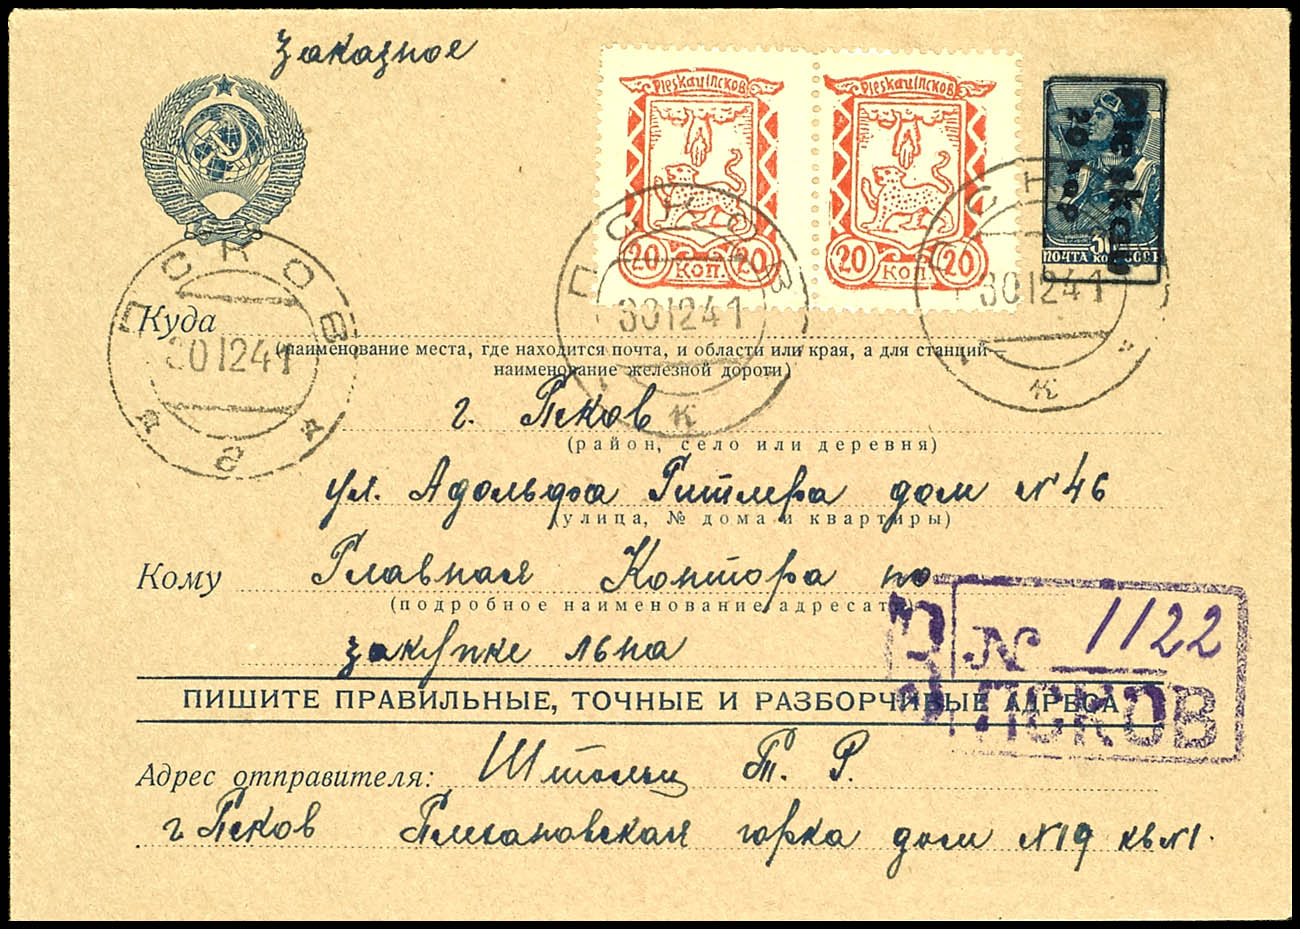 Заказное
Pleskau/Псков Pleskau/Псков
20 КОП. 20 20 КОП. 20
Pleskau
20 коп.
ПОЧТА КОП СССР
ПСКОВ ПСКОВ ПСКОВ
301241 301241 301241
Куда
(наименование места, где находится почта, и области или края, а для станций—
наименование железной дороги)
г. Псков
(район, село или деревня)
ул. Адольфа Гитлера дом №46
(улица, № дома и квартиры)
Кому Главная Контора по
(подробное наименование адресата)
закупке льна
З
№ 1122
ПСКОВ
ПИШИТЕ ПРАВИЛЬНЫЕ, ТОЧНЫЕ И РАЗБОРЧИВЫЕ АДРЕСА
Адрес отправителя: Штольц Т. Р.
г Псков горка дом №19 кв №1.